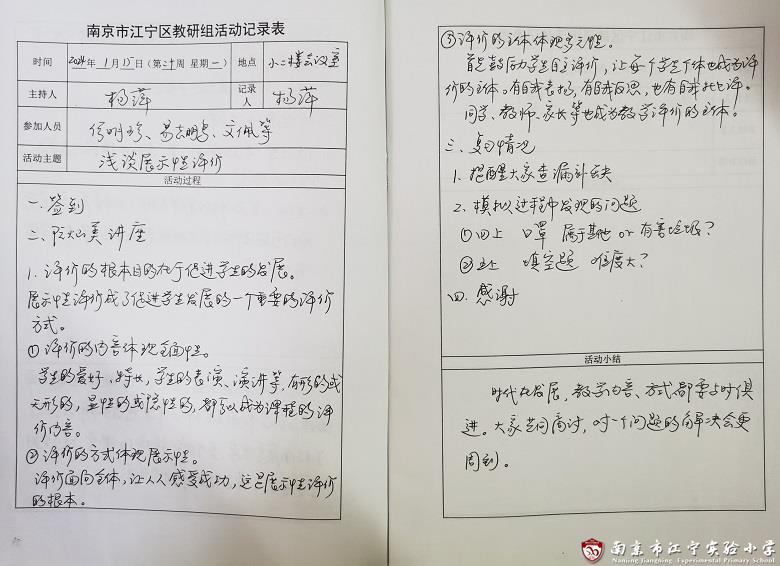 南京市江宁区教研组活动记录表
时间 2024年1月15日(第二十周 星期一) 地点 小二楼会议室
主持人 杨萍 记录人 杨萍
参加人员 易志鹏、文佩等
活动主题 浅谈展示性评价
活动过程
一.签到
二、阮灿美讲座
1.评价的根本目的在于促进学生的发展。
展示性评价成了促进学生发展的一个重要的评价
方式。
①评价的内容体现全面性。
学生的爱好、特长,学生的表演、演讲等,有形的或
无形的,显性的或隐性的,都可以成为课程的评
价内容。
②评价的方式体现展示性。
评价面向全体,让人人感受成功,这是展示性评价
的根本。
③评价的主体体现多元性。
首先鼓励学生自主评价,让每个学生个体也成为评
价的主体,有自我表扬,有自我反思,也有自我批评。
同学、教师、家长等也成为教学评价的主体。
三、复习情况
1.提醒大家查漏补缺
2、模拟过程中发现的问题
①四上 口罩 属于其他 or 有害垃圾?
②五上 填空题 难度大?
四.感谢
活动小结
时代在发展,教学内容、方式都要与时俱
进。大家共同商讨,对一个问题的解决会更
周到。
南京市江宁实验小学
Nanjing Jiangning Experimental Primary School